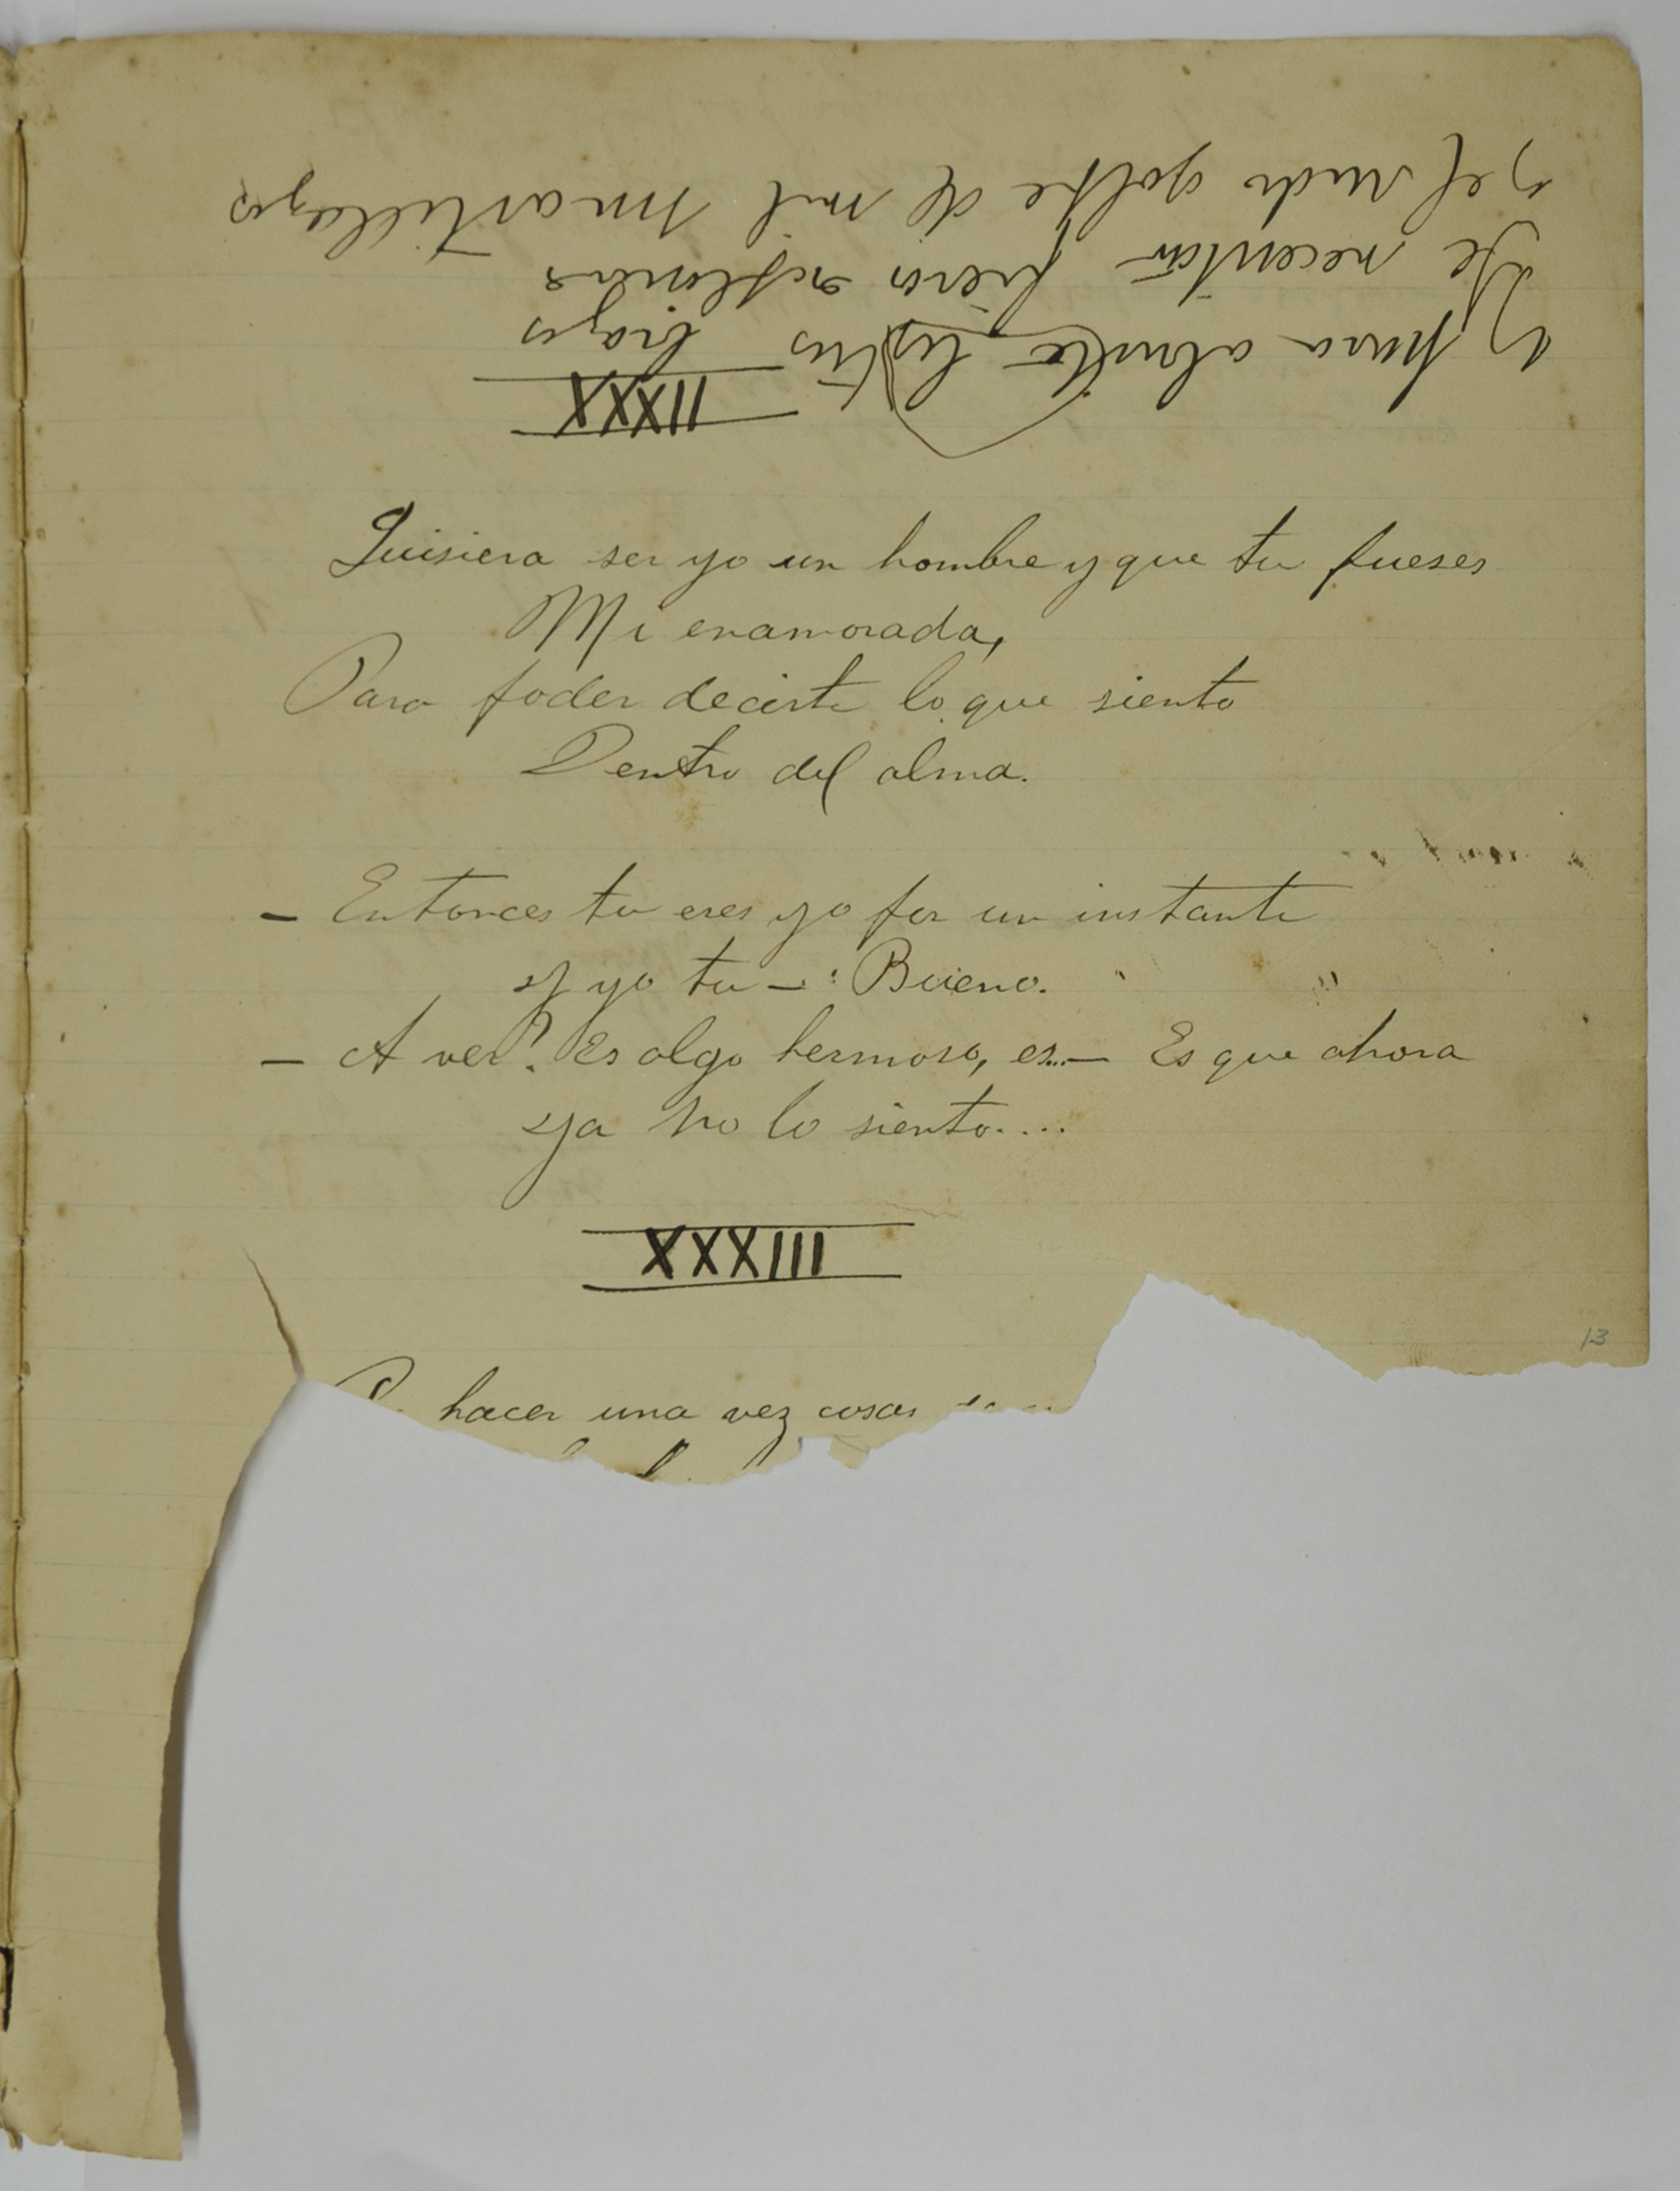 y para brazos
Se necesitan
y el rudo golpe de mil martillazos
XXXII
Quisiera ser yo un hombre y que tu fueses
Mi enamorada,
Para poder decirte lo que siento
Dentro del alma.
— Entonces tu eres yo por un instante
y yo tu —: Bueno.
— A ver? Es algo hermoso, es...— Es que ahora
ya no lo siento....
XXXIII
hacer una vez cosas
13